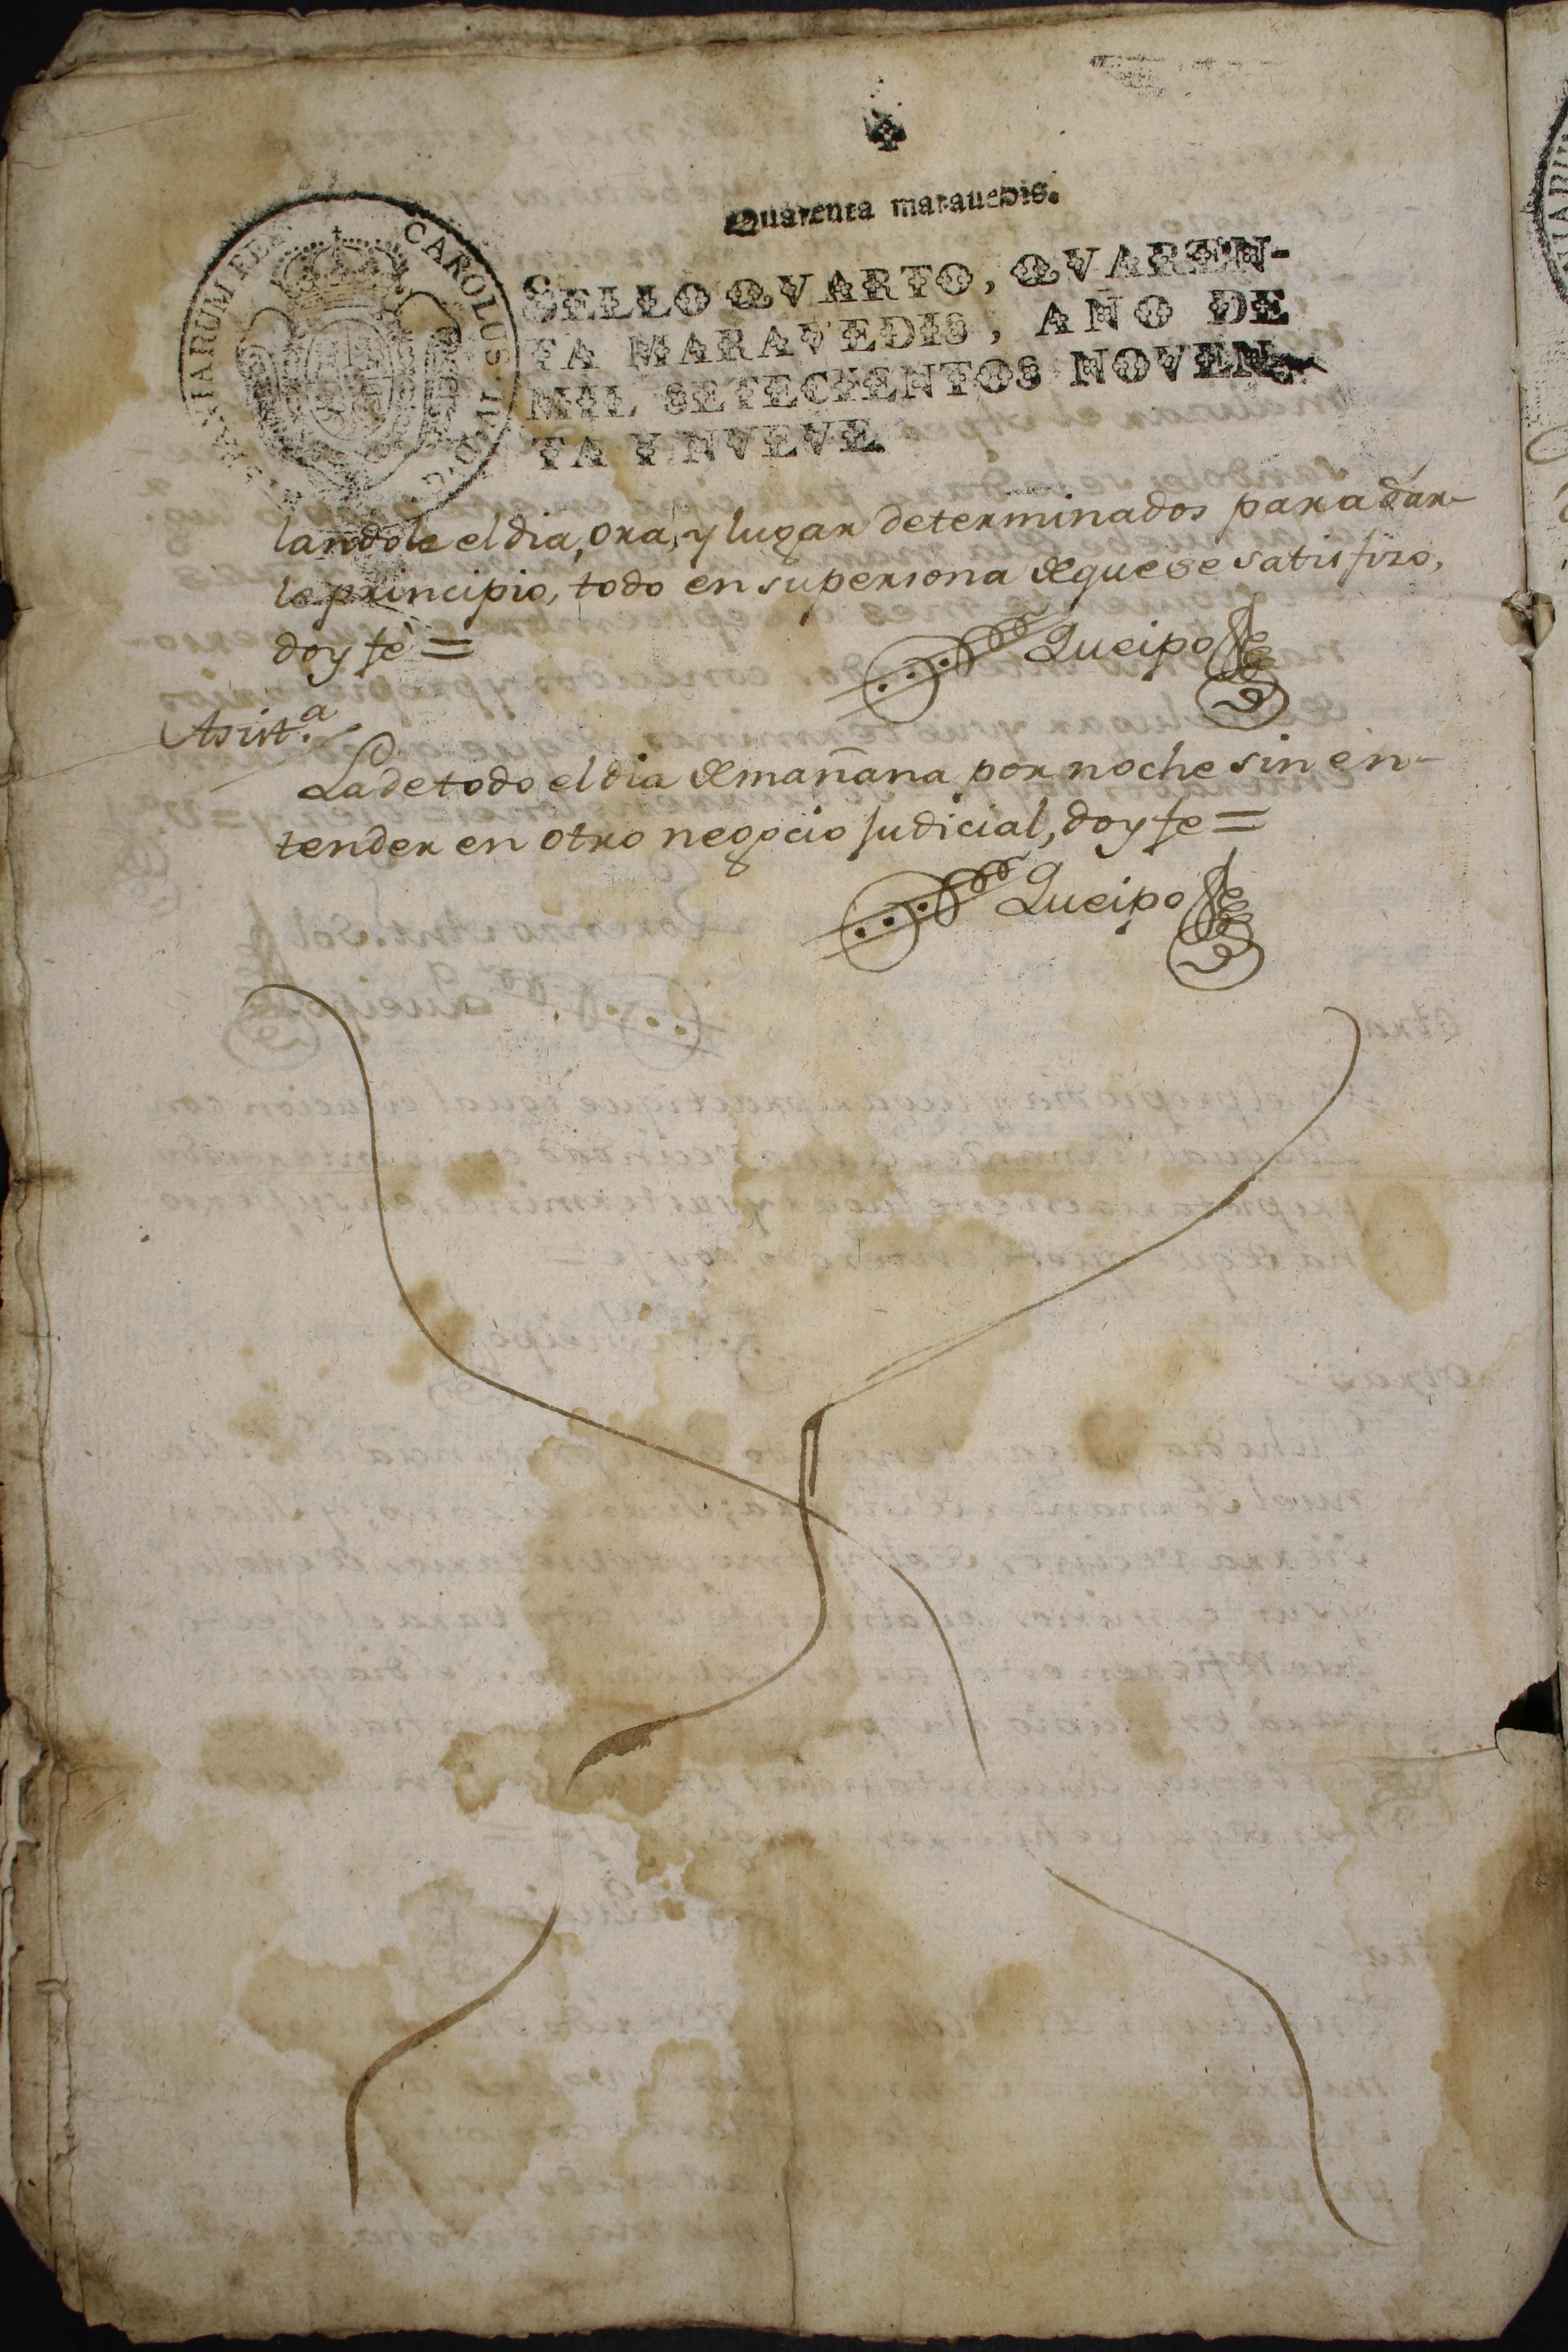 Quarenta maravedis.
CAROLUS IV D. G.
HISPANIARUM REX
SELLO QVARTO, QVAREN-
TA MARAVEDIS, AÑO DE
MIL SETECIENTOS NOVEN
TA Y NVEVE
landole el dia, ora, y lugar determinados para dar-
le principio, todo en su persona de que se satisfizo,
doy fe =
Queipo
Asist.a
La de todo el dia de mañana por noche sin en-
tender en otro negocio judicial, doy fe =
Queipo